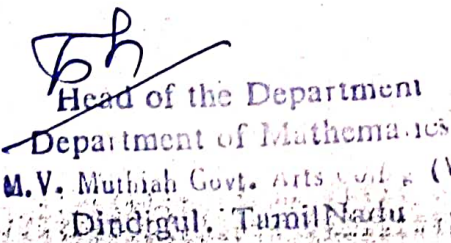 Head of the Department
Department of Mathematics
M.V. Muthiah Govt. Arts (W
Dindigul, TamilNadu